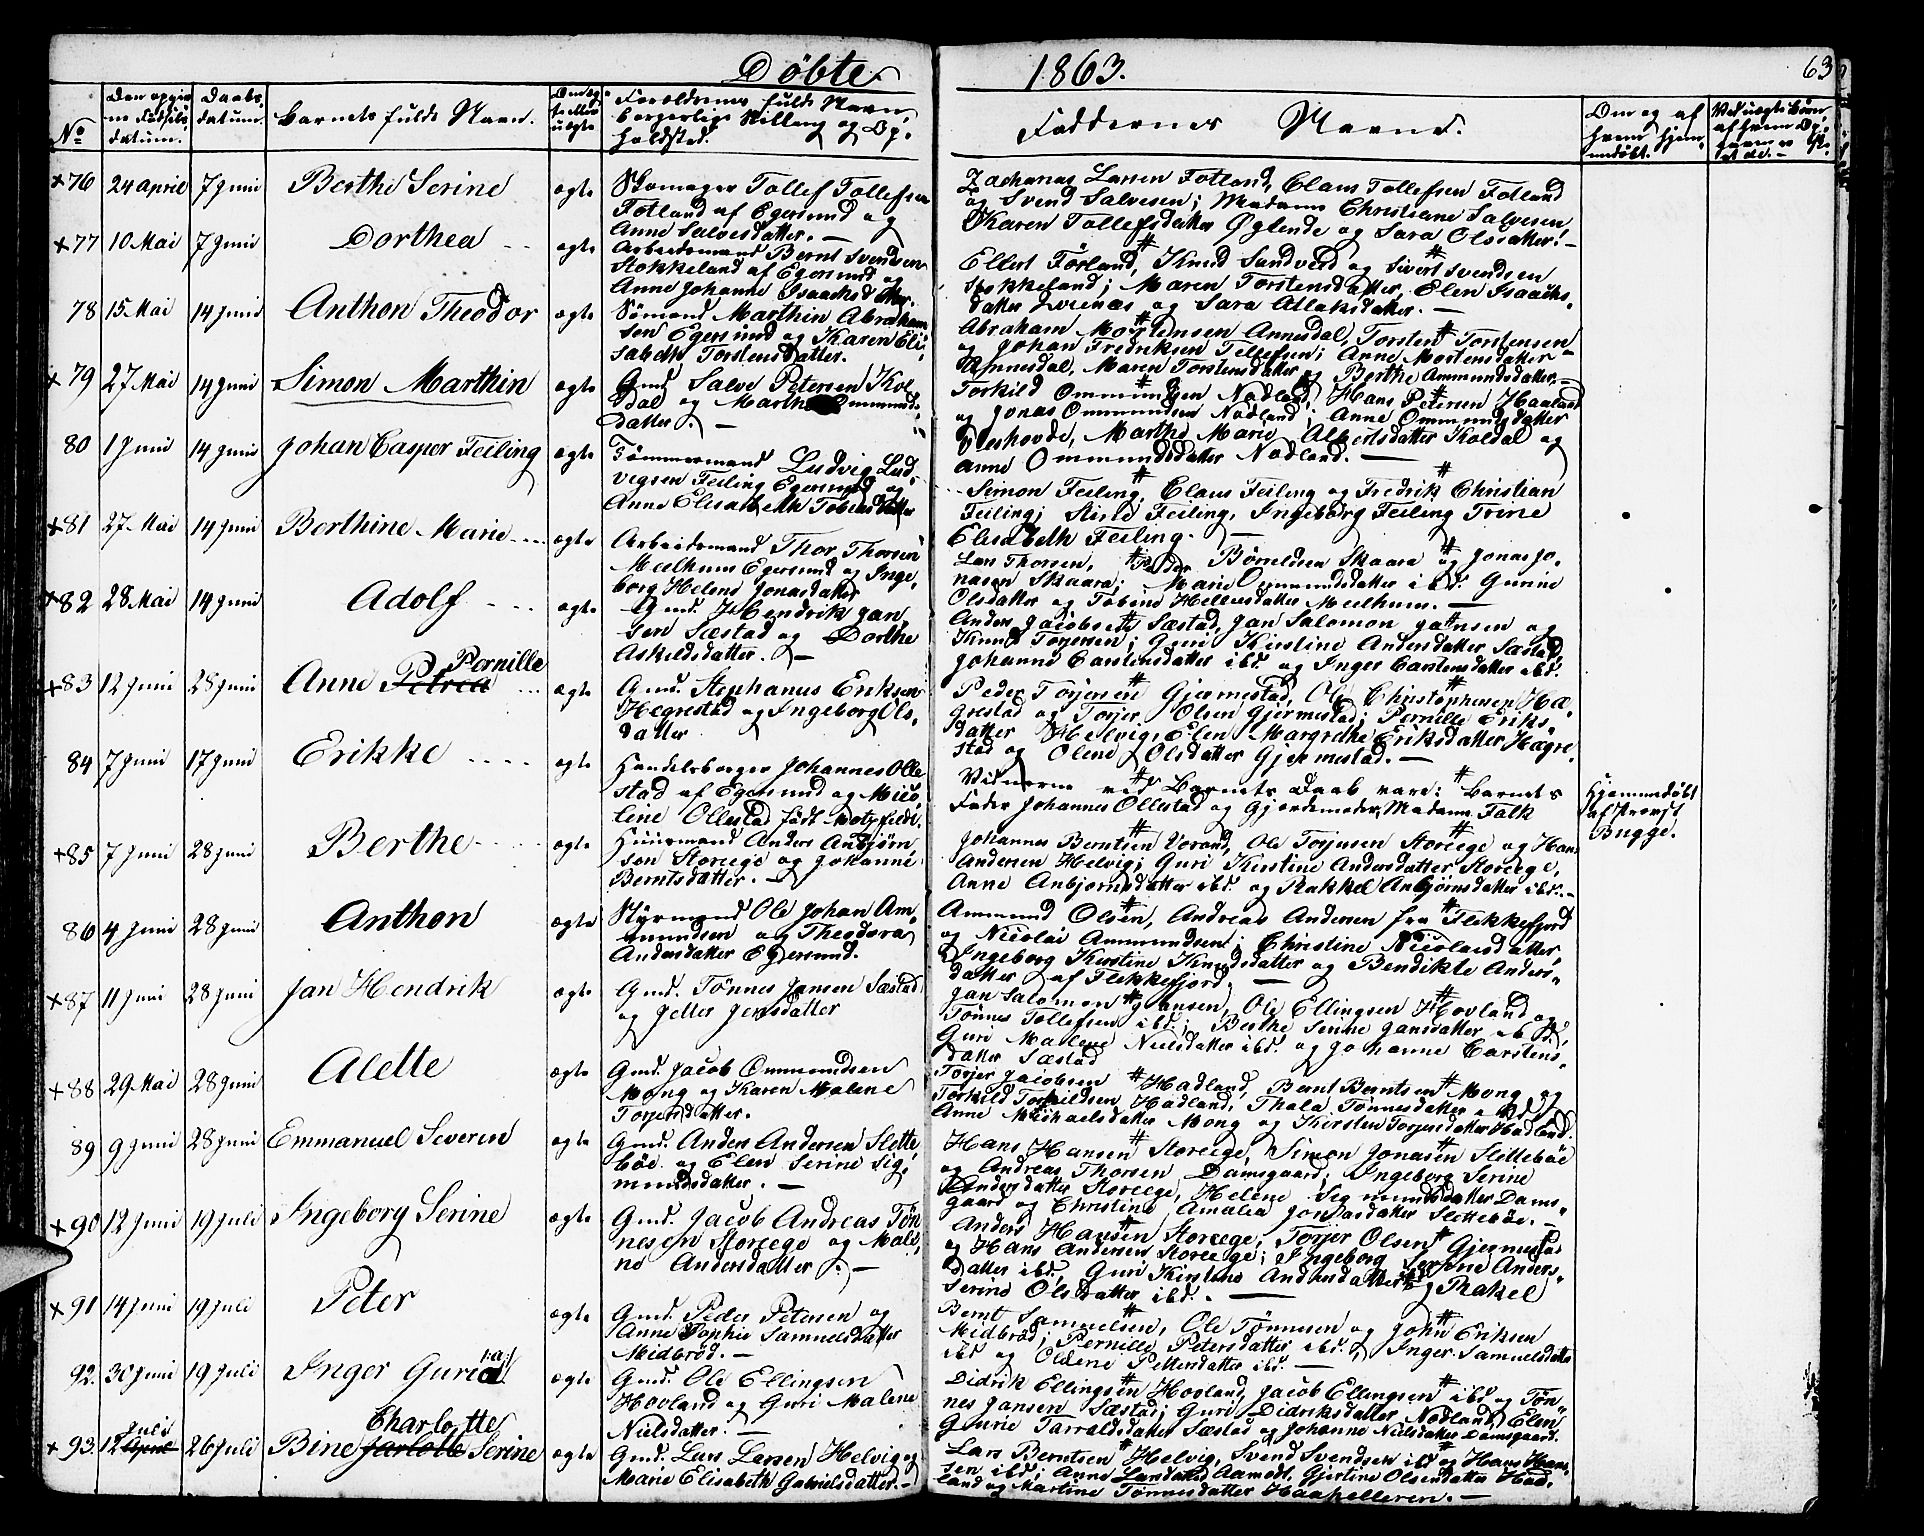 Døbte 1863. 63
No
Den opgivne Fødselsdatum.
Daabsdatum.
Barnets fulde Navn.
Om ægte eller uægte
Forældrenes fulde Navn, borgerlige Stilling og Opholdssted.
Faddernes Navne.
Om og af hvem hjemmedøbt.
Ved uægte Børn, af hvem
+76 24 April 7 Juni Berthe Serine ægte
Skomager Tollef Tollefsen
Fotland af Egersund og
Anne Salvesdatter. —
Zacharias Larsen Fotland, Claus Tollefsen Fotland
og Svend Salvesen; Madame Christiane Salvesen,
Karen Tollefsdatter Øglende og Sara Olsdatter. —
+77 10 Mai 7 Juni Dorthea ægte
Arbeidsmand Bernt Svendsen
Stokkeland af Egersund og
Anne Johanne Isaachsdatter.
Ellert Förland, Knud Sandved og Sivert Svendsen
Stokkeland; Maren Torstensdatter, Elen Isaachs-
datter og Sara Atlaksdatter. —
78 15 Mai 14 Juni Anthon Theodor ægte
Sömand Marthin Abraham-
sen Egersund og Karen Eli-
sabeth Torstensdatter.
Abraham Mortensen Annesdal, Torsten Torstensen
og Johan Fredriksen Tellefsen; Anne Mortensdatter
Annesdal, Maren Torstensdatter og Berthe Ammundsdatter. —
+79 27 Mai 14 Juni Simon Marthin ægte
Gmd. Salve Petersen Kol-
dal og Marthe Ommunds-
datter. —
Torkild Ommundsen Nodland, Hans Petersen Haaland
og Jonas Ommundsen Nodland; Anne Ommundsdatter
Marthe Marie Albertsdatter Koldal og
Anne Ommundsdatter Nodland. —
80 1 Juni 14 Juni Johan Casper Feiling ægte
Tömmermand Ludvig Lud-
vigsen Feiling Egersund og
Anne Elisabeth Tobiasdatter
Simon Feiling, Claus Feiling og Fredrik Christian
Feiling; Feiling, Ingeborg Feiling Trine
Elisabeth Feiling. —
+81 27 Mai 14 Juni Berthine Marie ægte
Arbeidsmand Thor Thorsen
Meelhuus Egersund og Inge-
borg Helene Jonasdatter
Lars Thorsen, Peder Börreldsen Skaara og Jonas Jo-
nasen Skaara; Marie Ommundsdatter ibd. Gunne
Olsdatter og Tobine Hellevesdatter Meelhuus. —
+82 28 Mai 14 Juni Adolf ægte
Gmd. Hendrik Jan-
sen Sæstad og Dorthe
Askildsdatter. —
Anders Jacobsen Sæstad, Jan Salomon Jansen og
Knud Torjersen; Guri Kirstine Andersdatter Sæstad,
Johanne Carstensdatter ibd. og Inger Carstensdatter ibd.
+83 12 Juni 28 Juni Anne Petrea Pernille ægte
Gmd. Stephanus Eriksen
Hegrestad og Ingeborg Ols-
datter
Peder Torjersen Gjermestad, Ole Christophersen Hæ-
grestad og Torjer Olsen Gjermestad; Pernille Eriks-
datter Helvig, Elen Margrethe Eriksdatter Hægre-
stad og Olene Olsdatter Gjermestad. —
84 7 Juni 17 Juni Erikke ægte
Handelsborger Johannes Olle-
stad af Egersund og Nico-
line Ollestad födt Motzfeldt.
Vidnerne ved Barnets Daab vare: Barnets
Fader Johannes Ollestad og Gjordemoder, Madame Falk
Hjemmedøbt
af Provst
Bugge.
+85 7 Juni 28 Juni Berthe ægte
Huusmand Anders Anbjörn-
sen Storeege og Johanne
Berntsdatter. —
Johannes Berntsen Ole Torjusen Storeege og Hans
Andersen Helvig; Guri Kirstine Andersdatter Storeege,
Anne Anbjornsdatter ibd. og Rakkel Anbjörnsdatter ibd. —
86 4 Juni 28 Juni Anthon ægte
Styrmand Ole Johan Am-
mundsen og Theodora
Andersdatter Egersund.
Ammund Olsen, Andreas Andersen fra Flekkefjord
og Nicolai Ammundsen; Christine Nicolaisdatter,
Ingeborg Kirstine Knudsdatter og Bendikte Anders-
datter af Flekkefjord. —
+87 11 Juni 28 Juni Jan Hendrik ægte
Gmd. Tönnes Jansen Sæstad
og Jetter Jensdatter
Jan Salomon Jansen, Ole Ellingsen Hovland og
Tönnes Tollefsen ibd.; Berthe Serine Jansdatter ibd.,
Guri Malene Nielsdatter ibd. og Johanne Carstens-
datter Sæstad
+88 29 Mai 28 Juni Alette ægte
Gmd. Jacob Ommundsen
Mong og Karen Malene
Torjersdatter.
Torjer Jacobsen Hadland, Bernt Berntsen Mong og
Torkild Torkildsen Hadland, Thala Tönnesdatter ibd.,
Anne Michaelsdatter Mong og Kirsten Torjersdatter Hadland.
89 9 Juni 28 Juni Emmanuel Severin ægte
Gmd. Anders Andersen Slette-
böe og Elen Serine Sig-
mundsdatter. —
Hans Hansen Storeege, Simon Jonasen Sletteböe
og Andreas Thorsen Damsgaard; Ingeborg Serine
Andersdatter Storeege, Helene Sigmundsdatter Dams-
gaard og Christine Amalia Jonasdatter Sletteböe. —
+90 12 Juni 19 Juli Ingeborg Serine ægte
Gmd. Jacob Andreas Tön-
nesen Storeege og Male-
ne Andersdatter. —
Anders Hansen Storeege, Torjer Olsen Gjermestad
og Hans Andersen Storeege; Ingeborg Serine Anders-
datter ibd., Guri Kirstine Andersdatter og Rakel
Serine Olsdatter ibd. —
+91 14 Juni 19 Juli Peter ægte
Gmd. Peder Petersen og
Anne Sophie Samuelsdatter
Midbröd. —
Bernt Samuelsen, Ole Tönnesen og John Eriksen
Midbröd; Pernille Petersdatter ibd., Inger Samuelsdatter
ibd og Oldene Pettersdatter ibd. —
92. 30 Juni 19 Juli Inger Guria ægte
Gmd. Ole Ellingsen
Hovland og Guri Malene
Nielsdatter. —
Didrik Ellingsen Hovland, Jacob Ellingsen ibd og Tön-
nes Jansen Sæstad; Guri Didriksdatter Nodland, Elen
Gurie Tarraldsdatter Sæstad og Johanne Nielsdatter Damsgaard.
+93. 12 April Juli 26 Juli Bine Jarlotte Charlotte Serine ægte
Gmd. Lars Larsen Helvig og
Marie Elisabeth Gabrielsdatter. —
Lars Berntsen Helvig, Svend Svendsen ibd og Hans Han-
sen ibd; Anne Larsdatter Aamodt, Gjertine Olsdatter Had-
land og Martine Tönnesdatter Haahelleren. —